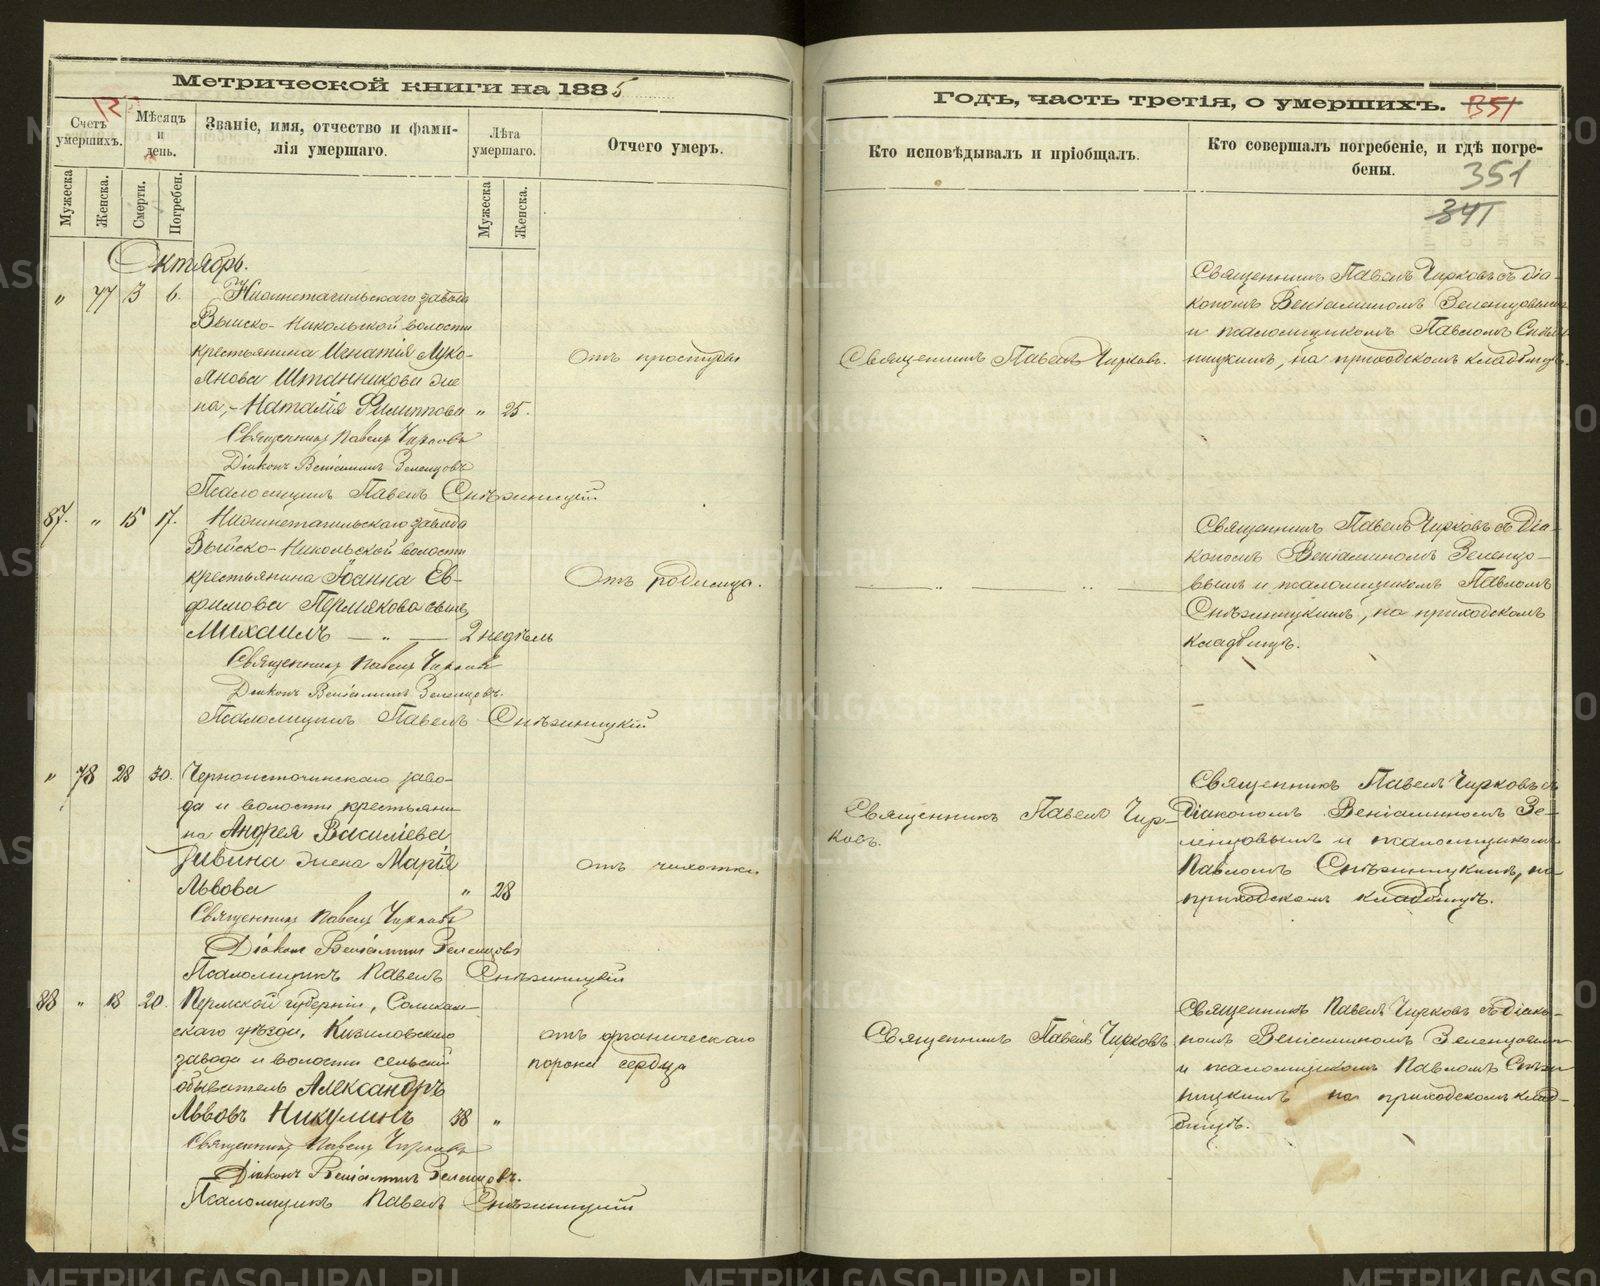 Метрической книги на 1885
Счетъ умершихъ.
Мѣсяцъ и день.
Званіе, имя, отчество и фами-
лія умершаго.
Лѣта умершаго.
Отчего умеръ.
Мужеска
Женска.
Смерти.
Погребен.
Мужеска
Женска.
Октябрь.
„ 77 3 6. Нижнетагильскаго завода
Выйско-Никольской волости
крестьянина Игнатія Луко-
янова Штанникова же
на, - Наталія Филиппова „ 25.
Отъ простуды
Священникъ Павелъ Чирковъ
Діаконъ Веніаминъ Зеленцовъ
Псаломщикъ Павелъ Снѣжницкій
87. „ 15 17. Нижнетагильскаго завода
Выйско-Никольской волости
крестьянина Іоанна Ев-
фимова Пермякова сынъ
Михаилъ — „ — 2 недѣль
Отъ родимца.
Священникъ Павелъ Чирковъ
Діаконъ Веніаминъ Зеленцовъ.
Псаломщикъ Павелъ Снѣжницкій
„ 78 28 30. Черноисточинскаго заво-
да и волости крестьяни
на Андрея Василіева
жена Марія
Львова „ 28
отъ чахотки
Священникъ Павелъ Чирковъ
Діаконъ Веніаминъ Зеленцовъ
Псаломщикъ Павелъ Снѣжницкій
88 „ 18 20. Пермской губерніи, Соликам-
скаго уѣзда, Кизиловскаго
завода и волости сельскій
обыватель Александръ
Львовъ Никулинъ 38 „
отъ органическаго
порока сердца
Священникъ Павелъ Чирковъ
Діаконъ Веніаминъ Зеленцовъ.
Псаломщикъ Павелъ Снѣжницкій
Годъ, часть третія, о умершихъ. 351
Кто исповѣдывалъ и пріобщалъ.
Кто совершалъ погребеніе, и гдѣ погре-
бены.
351
341
Священникъ Павелъ Чирковъ.
Священникъ Павелъ Чирковъ съ діа-
кономъ Веніаминомъ Зеленцовымъ
и псаломщикомъ Павломъ Снѣж
ницкимъ, на приходскомъ кладбищѣ.
— „ — „ —
Священникъ Павелъ Чирковъ съ Діа-
кономъ Веніаминомъ Зеленцо-
вымъ и псаломщикомъ Павломъ
Снѣжницкимъ, на приходскомъ
кладбищѣ.
Священникъ Павелъ Чир-
ковъ.
Священникъ Павелъ Чирковъ съ
Діакономъ Веніаминомъ Зе-
ленцовымъ и псаломщикомъ
Павломъ Снѣжницкимъ, на
приходскомъ кладбищѣ.
Священникъ Павелъ Чирковъ
Священникъ Павелъ Чирковъ съ діако-
номъ Веніаминомъ Зеленцовымъ
и псаломщикомъ Павломъ Снѣж
ницкимъ на приходскомъ клад-
бищѣ.
METRIKI.GASO-URAL.RU